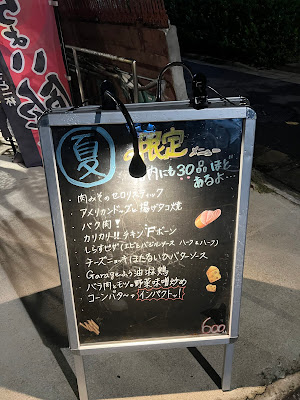 夏 限定 メニュー
他にも30品ほど
あるよ…
・肉みその セロリスティック
・アメリカンドッグ 揚げタコ焼
・バク肉!
・カリカリ!! チキン "F" ボーン
・しらすピザ (エビとバジルソース ハーフ&ハーフ)
・チーズ ほたるいかバターソース
・Garageふう 油淋鶏
・バラ肉とモツの野菜味噌炒め
・コーンバター インパクトっ!
600